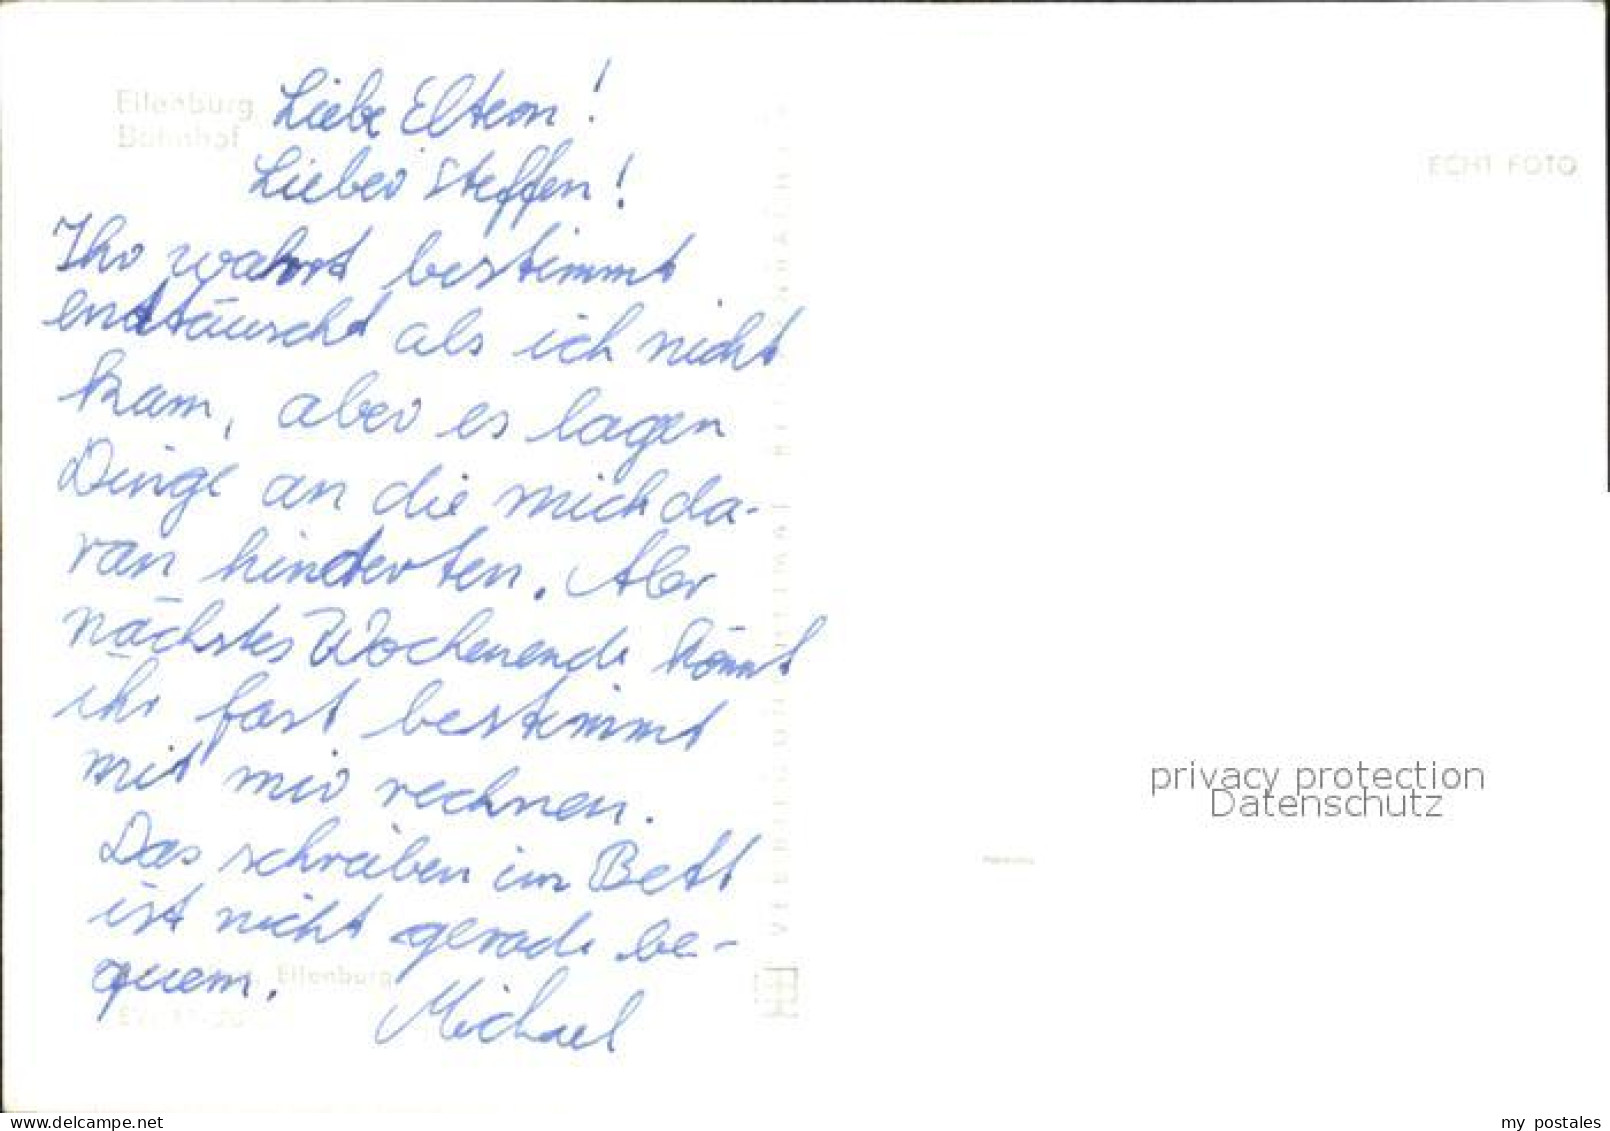 Eilenburg
Bahnhof
ECHT FOTO
Liebe Eltern!
Lieber Steffen!
Ihr wahrt bestimmt
enttäuscht als ich nicht
kam, aber es lagen
Dinge an die mich da-
ran hinderten. Aber
nächstes Wochenende könnt
ihr fast bestimmt
mit mir rechnen.
Das schreiben im Bett
ist nicht gerade be-
quem.
Michael
Eilenburg
privacy protection
Datenschutz
www.delcampe.net
my postales